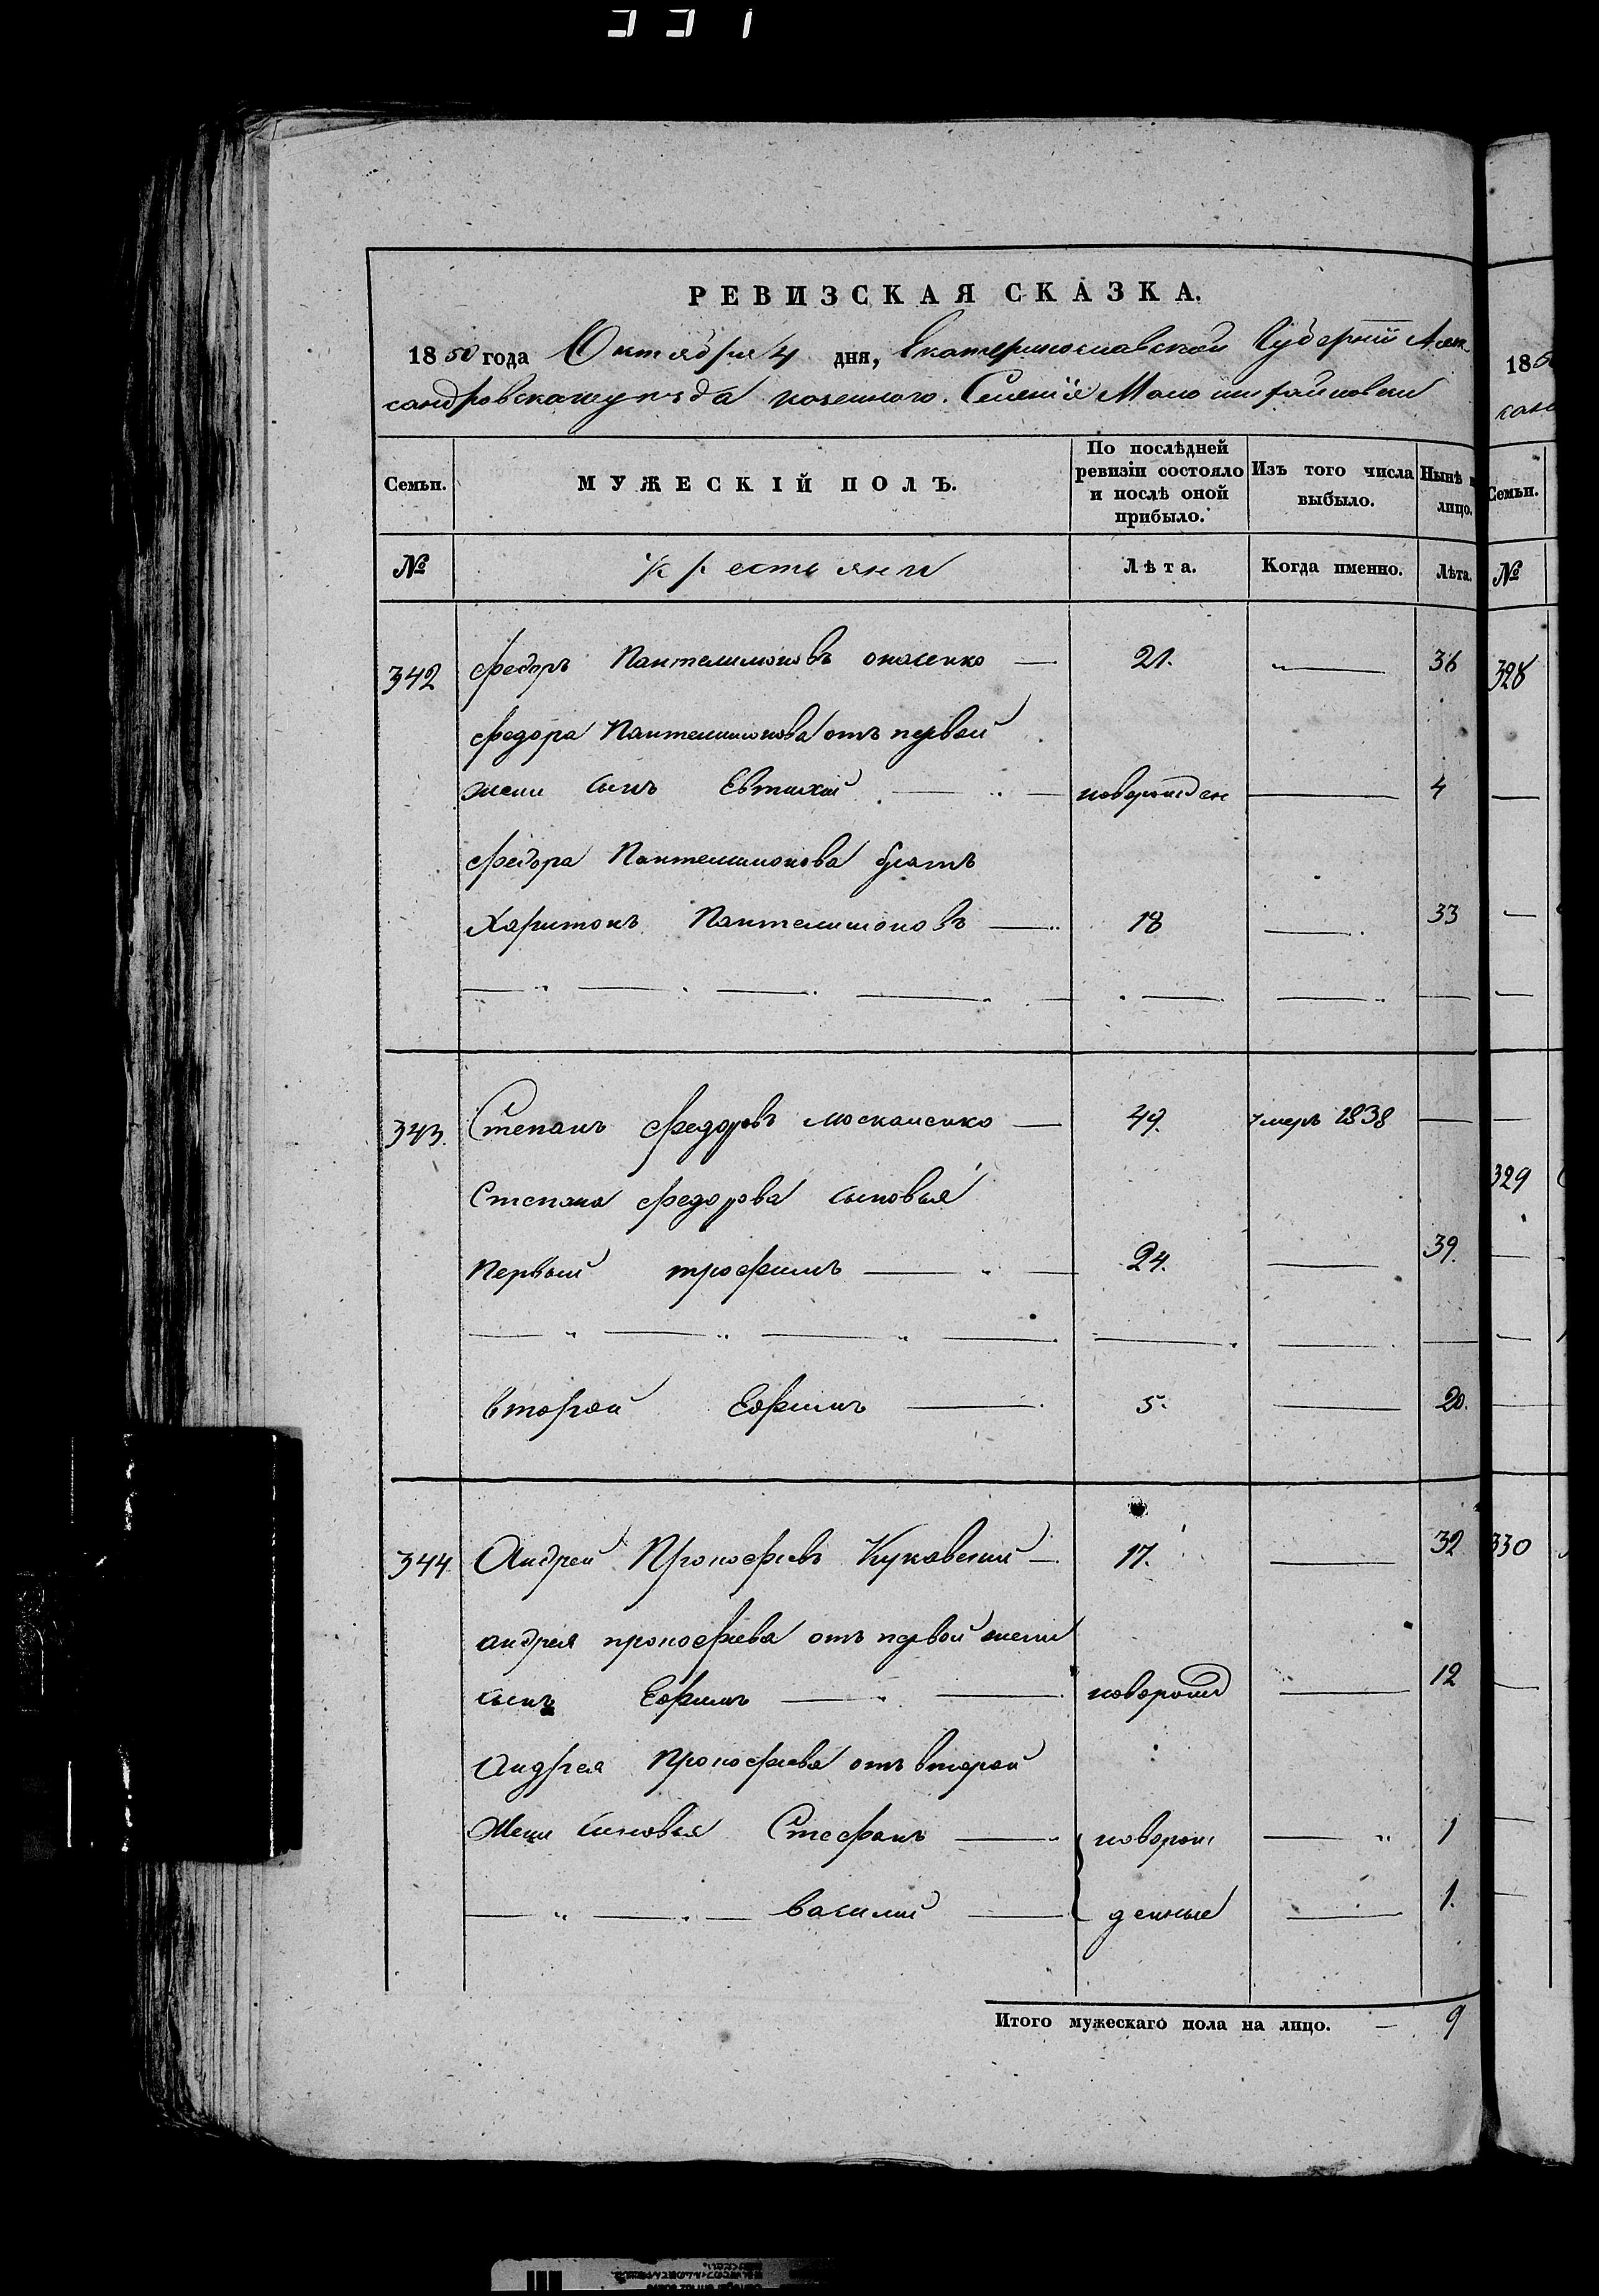 РЕВИЗСКАЯ СКАЗКА.
1850 года Октября 4 дня, Екатеринославской Губернии Алек
сандровского уезда казенного Селенія
Семьи.
МУЖЕСКІЙ ПОЛЪ.
По послѣдней ревизіи состояло и послѣ оной прибыло.
Изъ того числа выбыло.
Нынѣ н лицо.
№
крестьяни
Лѣта.
Когда именно.
Лѣта.
342 Федоръ Пантелимоновъ 21. 36
Федора Пантелимонова отъ первой
жени сынъ Евтихій новорожден 4
Федора Пантелимонова братъ
Харитонъ Пантелимоновъ 18 33
343. Степанъ Федоровъ Москаленко 49. умеръ 1838
Степана Федорова сыновья
Первый трофимъ 24. 39.
второй Ефимъ 5. 20.
344. Андрей Прокофіевъ Куковскій 17. 32
андрея прокофіева отъ первой жени
сынъ Ефимъ новорожд 12
Андрея Прокофіева отъ второй
Жени синовья Стефанъ новорож 1
василий денные 1.
Итого мужескаго пола на лицо. 9
1850
санд
Семьи.
№
328
329
330